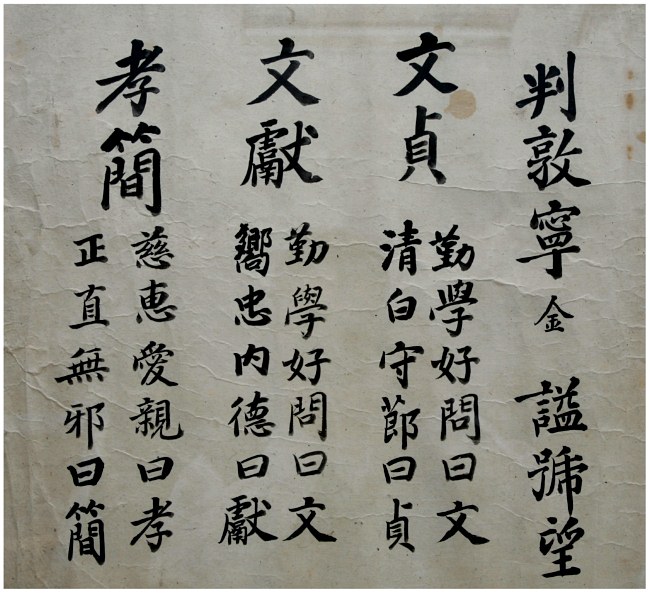 判敦寧金 謚號望
文貞
勤學好問曰文
清白守節曰貞
文獻
勤學好問曰文
嚮忠內德曰獻
孝簡
慈惠愛親曰孝
正直無邪曰簡